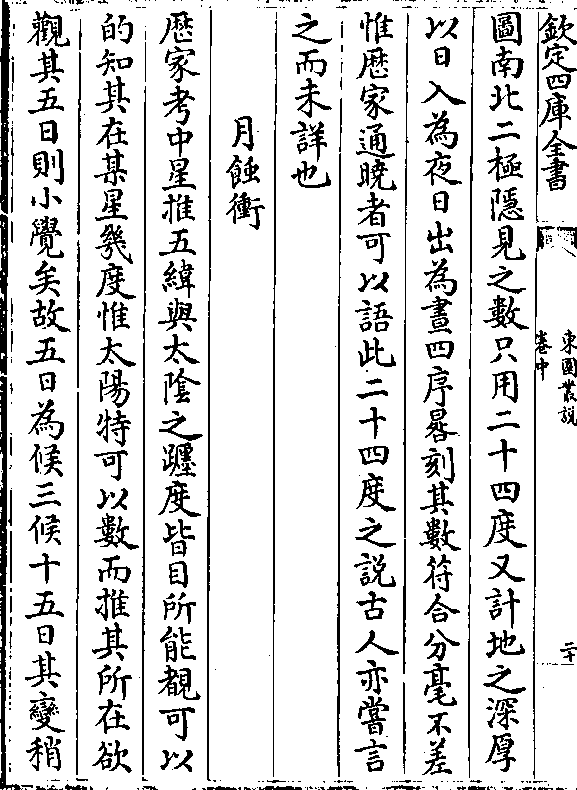 欽定四庫全書
東園叢說
卷中
二十
圖南北二極隱見之數只用二十四度又計地之深厚
以日入為夜日出為晝四序晷刻其數符合分毫不差
惟歴家通曉者可以語此二十四度之說古人亦嘗言
之而未詳也
月蝕衝
歴家考中星推五緯與太陰之躔度皆目所能覩可以
的知其在某星幾度惟太陽特可以數而推其所在欲
觀其五日則小覺矣故五日為候三候十五日其變稍